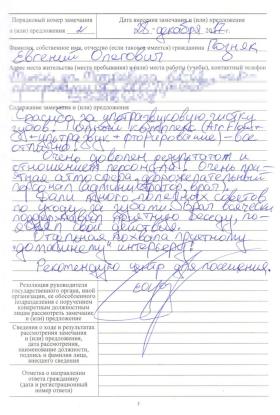 Порядковый номер замечания
и (или) предложения
Дата внесения замечания и (или) предложения
28 декабря
Фамилия, собственное имя, отчество (если таковое имеется) гражданина Позняк
Евгений Олегович
Адрес места жительства (места пребывания) и (или) места работы (учебы), контактный телефон
Содержание замечания и (или) предложения
Спасибо за ультразвуковую чистку
зубов. комплекс (Air Flow +
+ ультразвук + фторирование) – все
отлично!
Очень доволен результатом и
отношением персонала! Очень при-
ятная атмосфера, доброжелательный
персонал (администратор, врач).
Дали много полезных советов
по уходу за зубами. Врач всячески
поддерживал приятную беседу, по-
свои действия.
Отдельная похвала приятному
"домашнему" интерьеру!
Рекомендую центр для посещения.
Резолюция руководителя
государственного органа, иной
организации, ее обособленного
подразделения с поручением
конкретным должностным
лицам рассмотреть замечание
и (или) предложение
Сведения о ходе и результатах
рассмотрения замечания
и (или) предложения,
дата рассмотрения,
наименование должности,
подпись и фамилия лица,
внесшего сведения
Отметка о направлении
ответа гражданину
(дата и регистрационный
номер ответа)